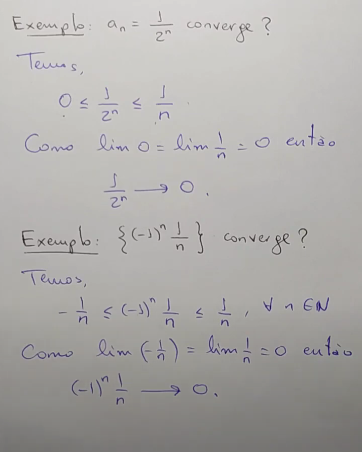 Exemplo: aₙ = 1/2ⁿ converge?
Temos,
0 ≤ 1/2ⁿ ≤ 1/n
Como lim 0 = lim 1/n = 0 então
1/2ⁿ → 0.
Exemplo: {(-1)ⁿ 1/n} converge?
Temos,
-1/n ≤ (-1)ⁿ 1/n ≤ 1/n, ∀ n ∈ ℕ
Como lim (-1/n) = lim 1/n = 0 então
(-1)ⁿ 1/n → 0.